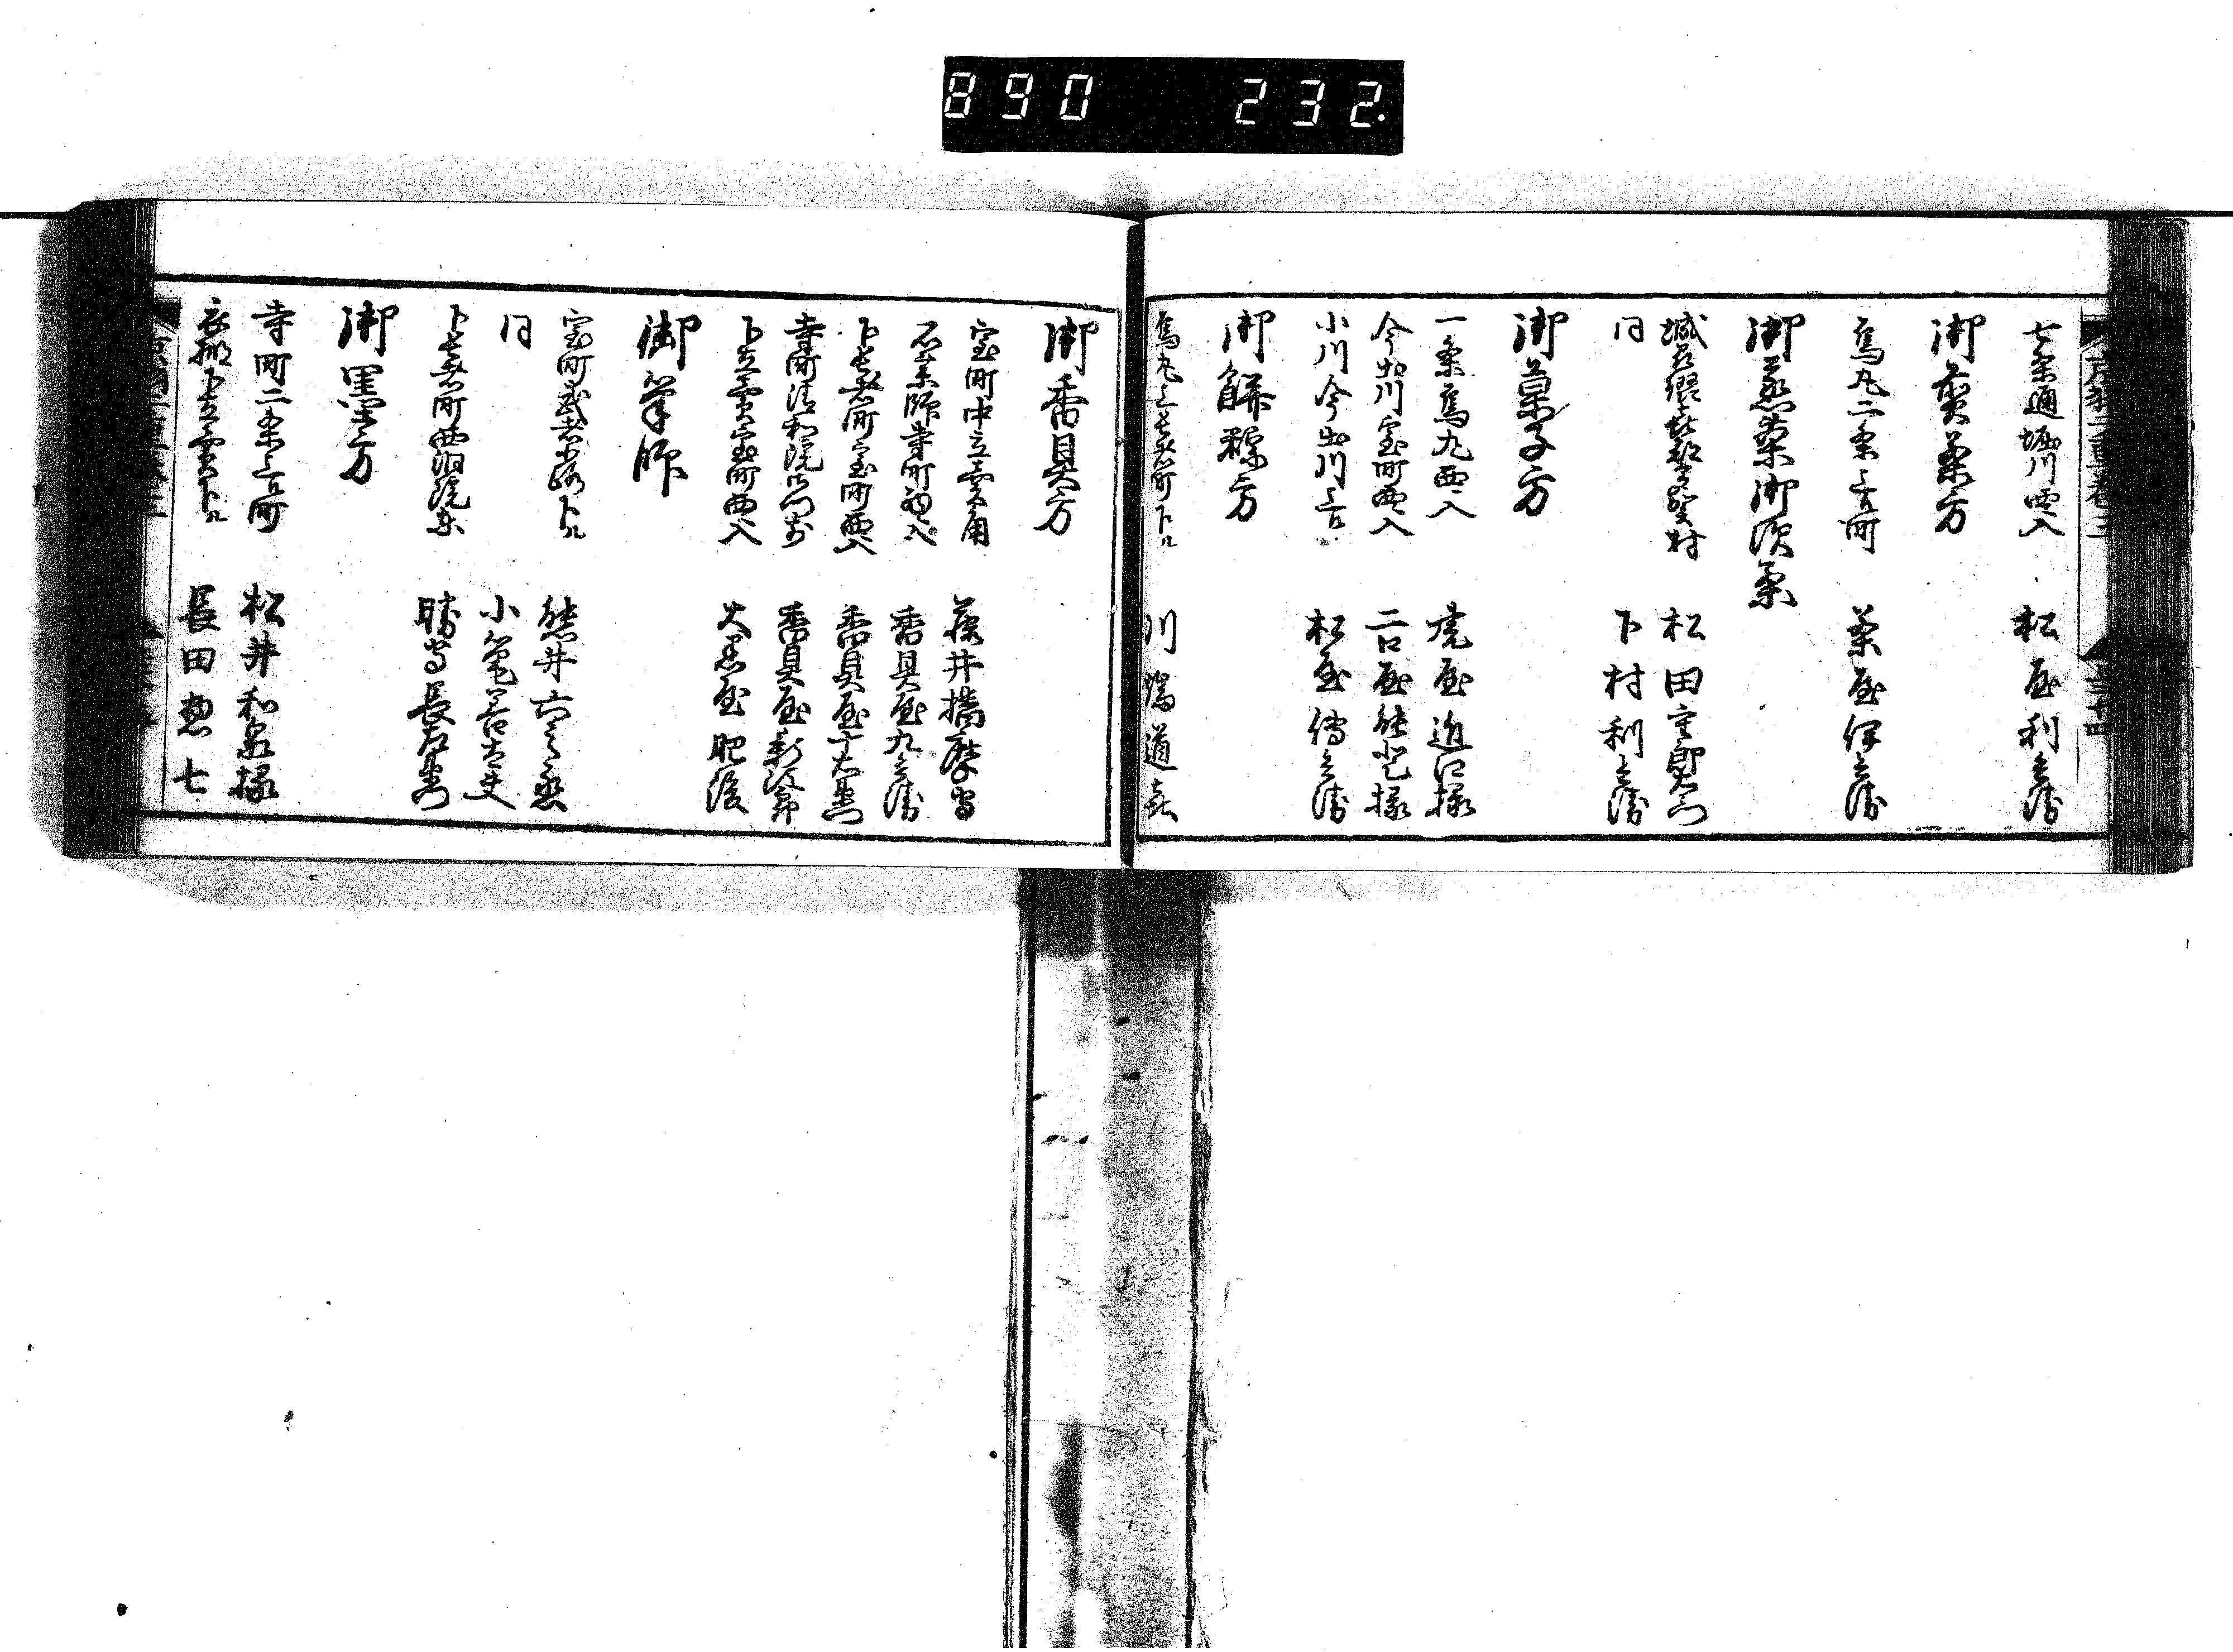 890 232.
七条通堀川西入 松屋利兵衛
御煎薬方
烏丸二条上ル町 薬屋伊兵衛
御蒸菜御漬菜
松田重郎左衛門
同 下村利兵衛
御菓子方
一条烏丸西入 虎屋近江掾
今出川室町西入 二口屋能登掾
小川今出川上ル 松屋傳兵衛
御餅粽方
烏丸上長者町下ル 川端道喜
御香具方
室町中立売角 藤井播磨守
石薬師寺町西入 香具屋九兵衛
下長者町室町西入 香具屋十右衛門
寺町清和院 香具屋新次郎
下立売室町西入 大黒屋肥後
御筆師
室町武者小路下ル 熊井六之丞
同 小篭若太夫
下長者町西洞院東 勝守長右衛門
御墨方
寺町二条上ル町 松井和泉掾
衣棚下立売下ル 長田惣七